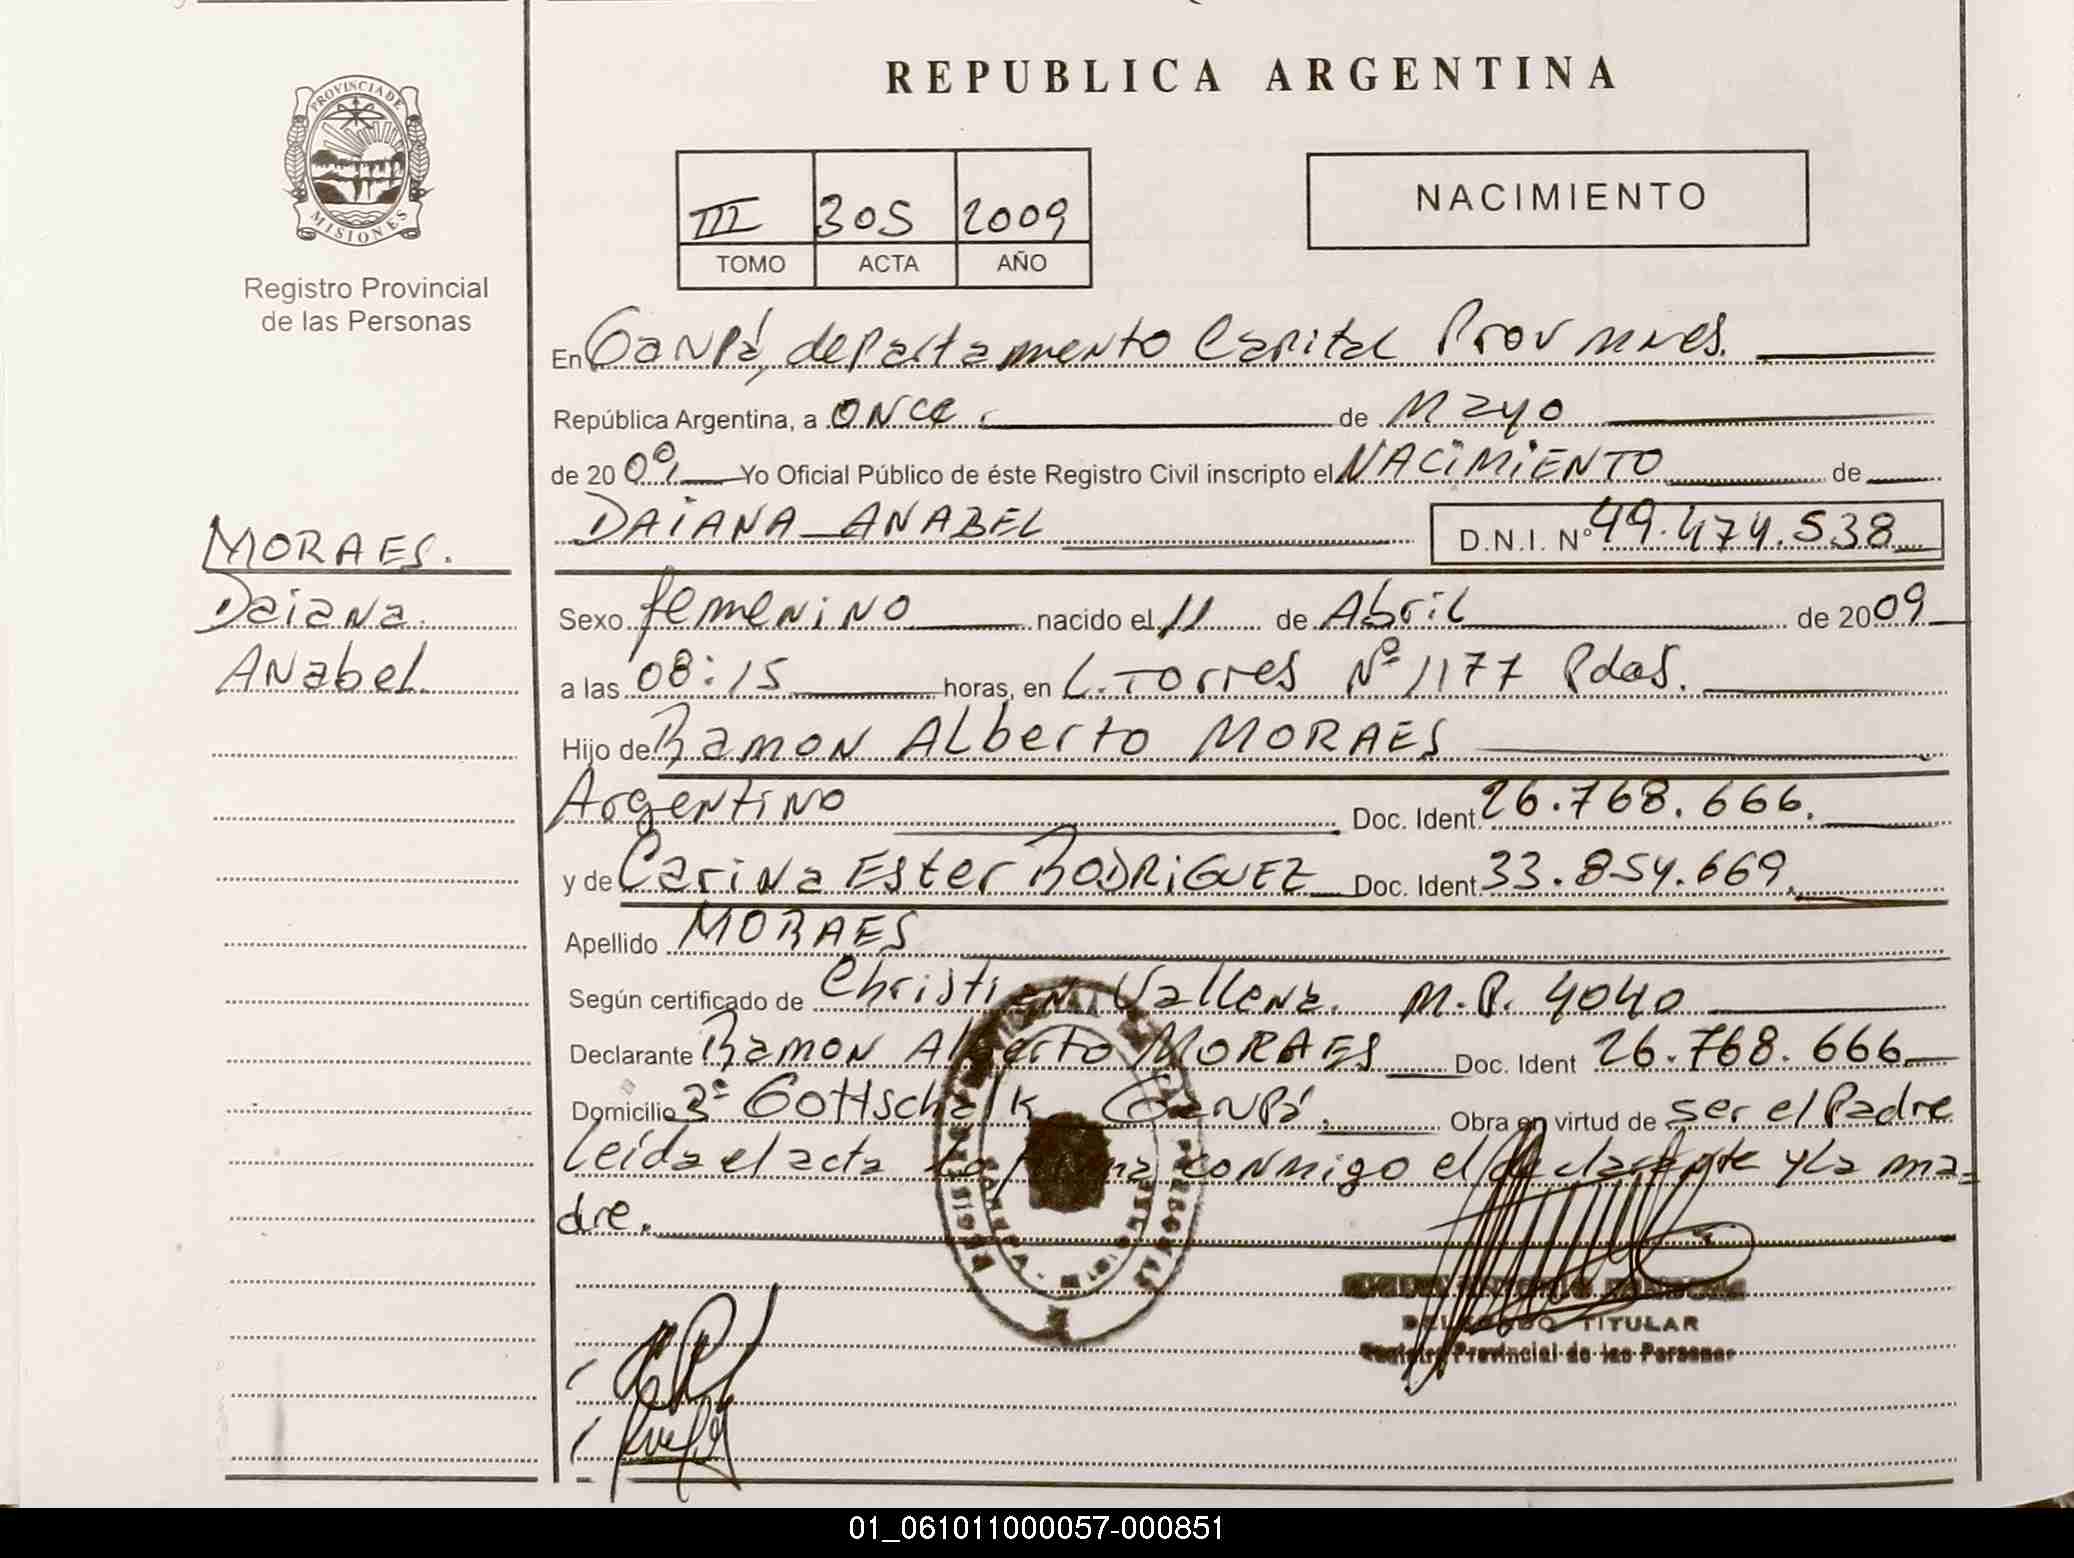 REPUBLICA ARGENTINA
PROVINCIA DE
MISIONES
Registro Provincial
de las Personas
III 305 2009
TOMO ACTA AÑO
NACIMIENTO
En Garupá, departamento Capital Prov mnes.
República Argentina, a once. de Mayo
de 2009 Yo Oficial Público de éste Registro Civil inscripto el NACIMIENTO de
DAIANA ANABEL D.N.I. Nº 49.474.538
MORAES.
Daiana
Anabel
Sexo femenino nacido el 11 de Abril de 2009
a las 08:15 horas, en L. Torres Nº 1177 Pdas.
Hijo de Ramon Alberto MORAES
Argentino Doc. Ident. 26.768.666.
y de Carina Ester RODRIGUEZ Doc. Ident. 33.854.669.
Apellido MORAES
Según certificado de Christian M.P. 4040
Declarante Ramon Alberto MORAES Doc. Ident 26.768.666
Domicilio Bº Gottschalk Garupá. Obra en virtud de ser el Padre
Leida el acta la firma conmigo el declarante y la ma=
dre.
DELEGADO TITULAR
Registro Provincial de las Personas
01_061011000057-000851